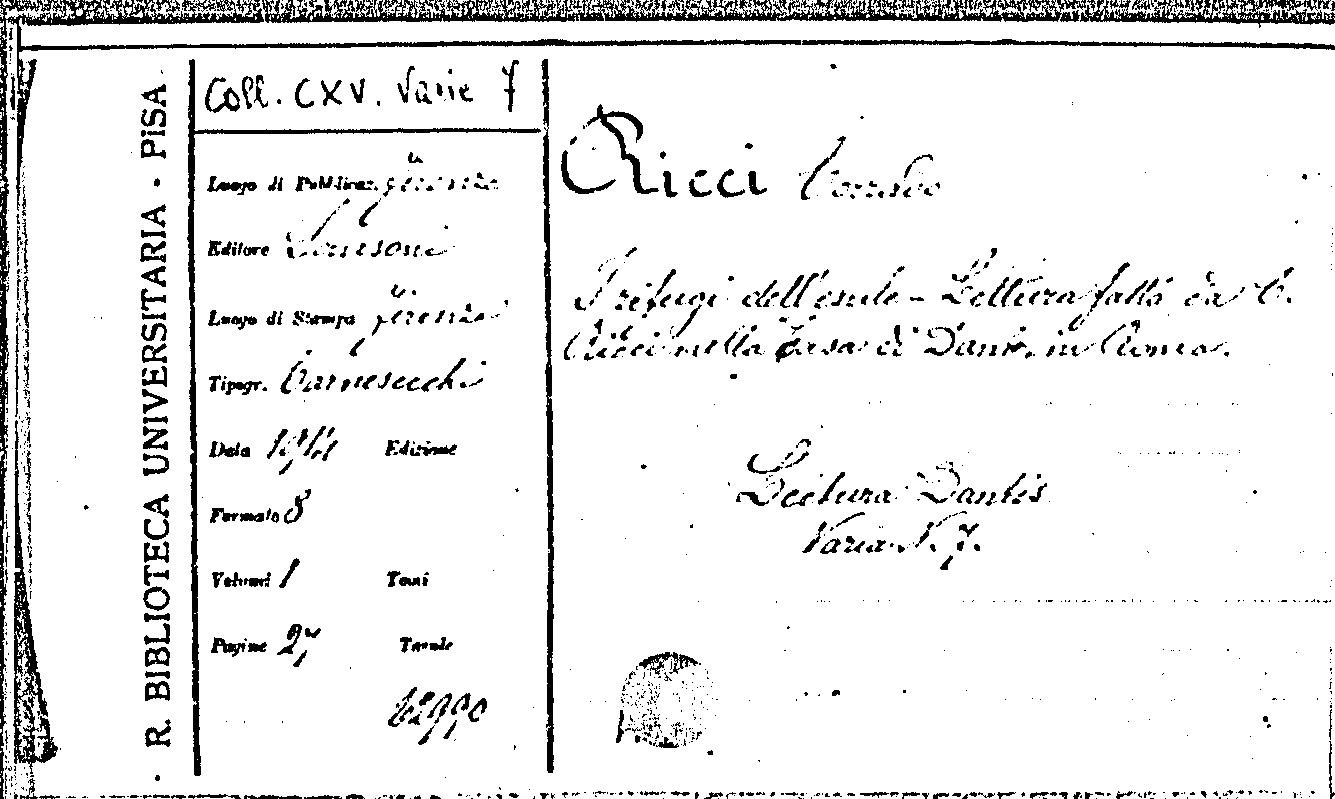 R. BIBLIOTECA UNIVERSITARIA - PISA
Coll. CXV. Varie 7
Luogo di Pubblicaz. Firenze
Editore Sansoni
Luogo di Stampa Firenze
Tipogr. Carnesecchi
Data Edizione
Formato 8
Volumi 1 Tomi
Pagine 27 Tavole
Ricci Corrado
I rifugi dell'esule - Lettura fatta da C.
Ricci nella Casa di Dante in Roma.
Lectura Dantis
Varia N. 7.